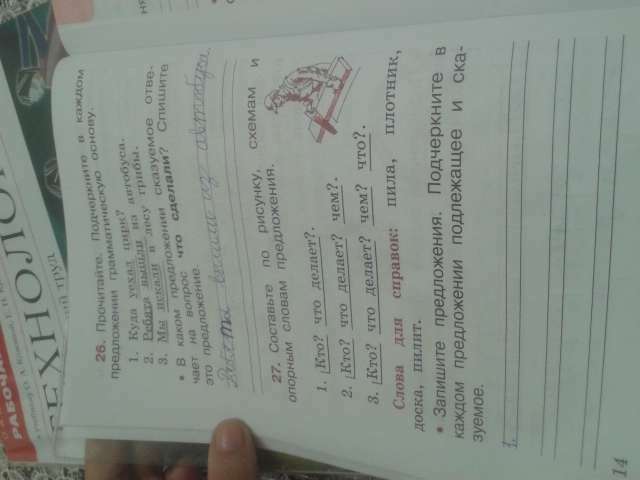 26. Прочитайте. Подчеркните в каждом
предложении грамматическую основу.
1. Куда уехал цирк?
2. Ребята вышли из автобуса.
3. Мы искали в лесу грибы.
• В каком предложении сказуемое отве-
чает на вопрос что сделали? Спишите
это предложение.
Ребята вышли из автобуса.
27. Составьте по рисунку, схемам и
опорным словам предложения.
1. Кто? что делает?.
2. Кто? что делает? чем?.
3. Кто? что делает? чем? что?.
Слова для справок: пила, плотник,
доска, пилит.
• Запишите предложения. Подчеркните в
каждом предложении подлежащее и ска-
зуемое.
1.
14
РАБОЧАЯ
ТЕХНОЛОГ
труд